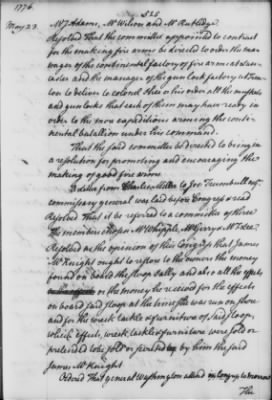 1776.
525
May 23.
Mr. Adams, Mr. Wilson and Mr. Rutledge.
Resolved That the committee appointed to contract
for the making fire arms be directed to order the ma-
nager of the continental factory of fire arms at Lan-
caster and the manager of the gun lock factory at Tren-
ton to deliver to colonel or his order all the muskets
and gun locks that each of them may have ready in
order to the more expeditious arming the conti-
nental batallion under his command.
That the said committee be directed to bring in
a resolution for promoting and encouraging the
making of good fire arms
A letter from Charles Miller to Jos: Trumbull esqr.
commissary general was laid before Congress & read
Resolved That it be referred to a committee of three
The members chosen Mr. Whipple, Mr. Gerry &
Resolved as the opinion of this Congress that James
McKnight ought to restore to the owners the money
found on board the sloop Sally and also all the effects
or the money he received for the effects
on board said sloop at the time she was run on shore
and for the wreck tackle & furniture of said sloop,
which effects, wreck, tackle & furniture were sold or
pretended to be sold or by him the said
James McKnight.
Ordered That general Washington attend in Congress to morrow
The